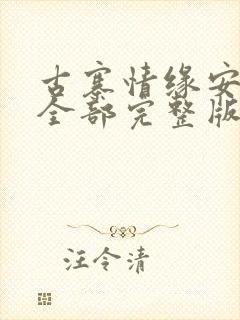 古寨情缘安
全部完整版
汪令清